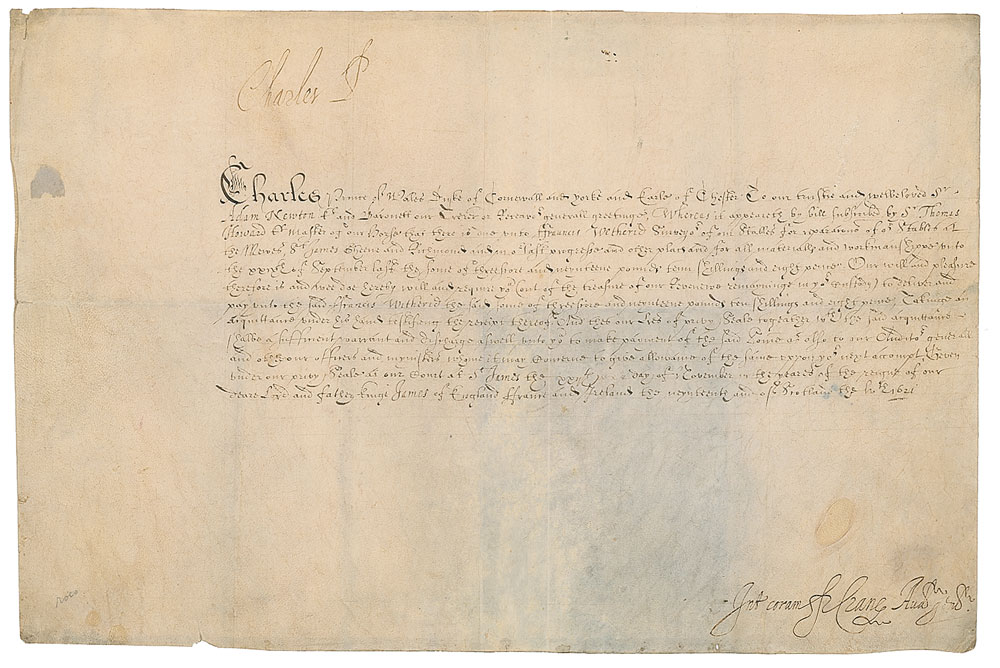 Charles P
Charles Prince of Wales Duke of Cornwall and Yorke and Earle of Chester To our trustie and welbeloved Sr
Adam Newton and Baronett our Receivr generall greetinge, Whereas it appeareth by bill subscribed by Sr Thomas
Howard Kt Master of our Horse that there is due vnto Francis Wethered Surveyor of our Stables for reparacons of or Stables at
the Mewes, St James Sheene and Richmond and in or last progresse and other places and for all materialls and workmanshippe vnto
the of September last the some of threescore and nyneteene poundes tenn shillings and eight pence Our will and pleasure
therefore is and wee doe hereby will and require you (out of the treasure of our Revenewes remayninge in yor Custody) to deliver and
pay vnto the said Francis Wethered the said some of threescore and nyneteene poundes ten shillings and eight pence, Takinge an
acquittance under his hand testifieng the receipt thereof. And thes our Lres of privy Seale together wth the said acquittance
shalbe a sufficient warrant and discharge aswell vnto yo to make payment of the said some as also to our Auditor generall
and other our officers and mynisters whome it may Concerne to give allowance of the same vpon yor next accompt Given
under our privy Seale at our Court at St James the day of November in the yeares of the reigne of our
deare Lord and father Kinge James of England Ffrance and Ireland the nyneteenth and of Scotland the 1621
Int coram Fr Crane